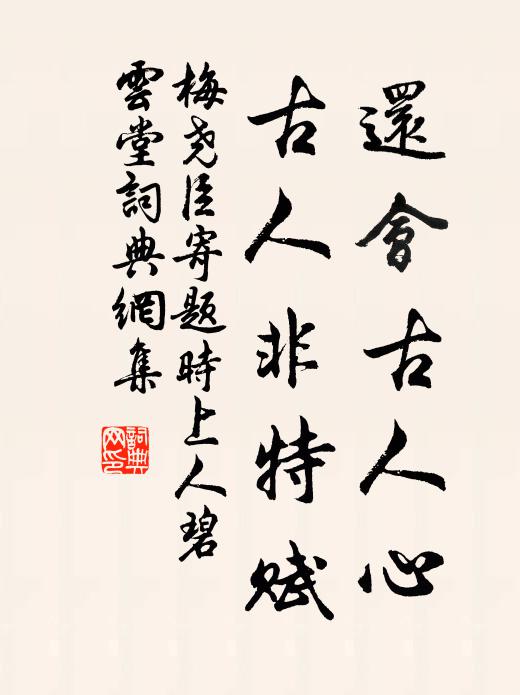 還會古人心
古人非特賦
梅堯臣寄題時上人碧
雲堂詞典網集
詞典
网印